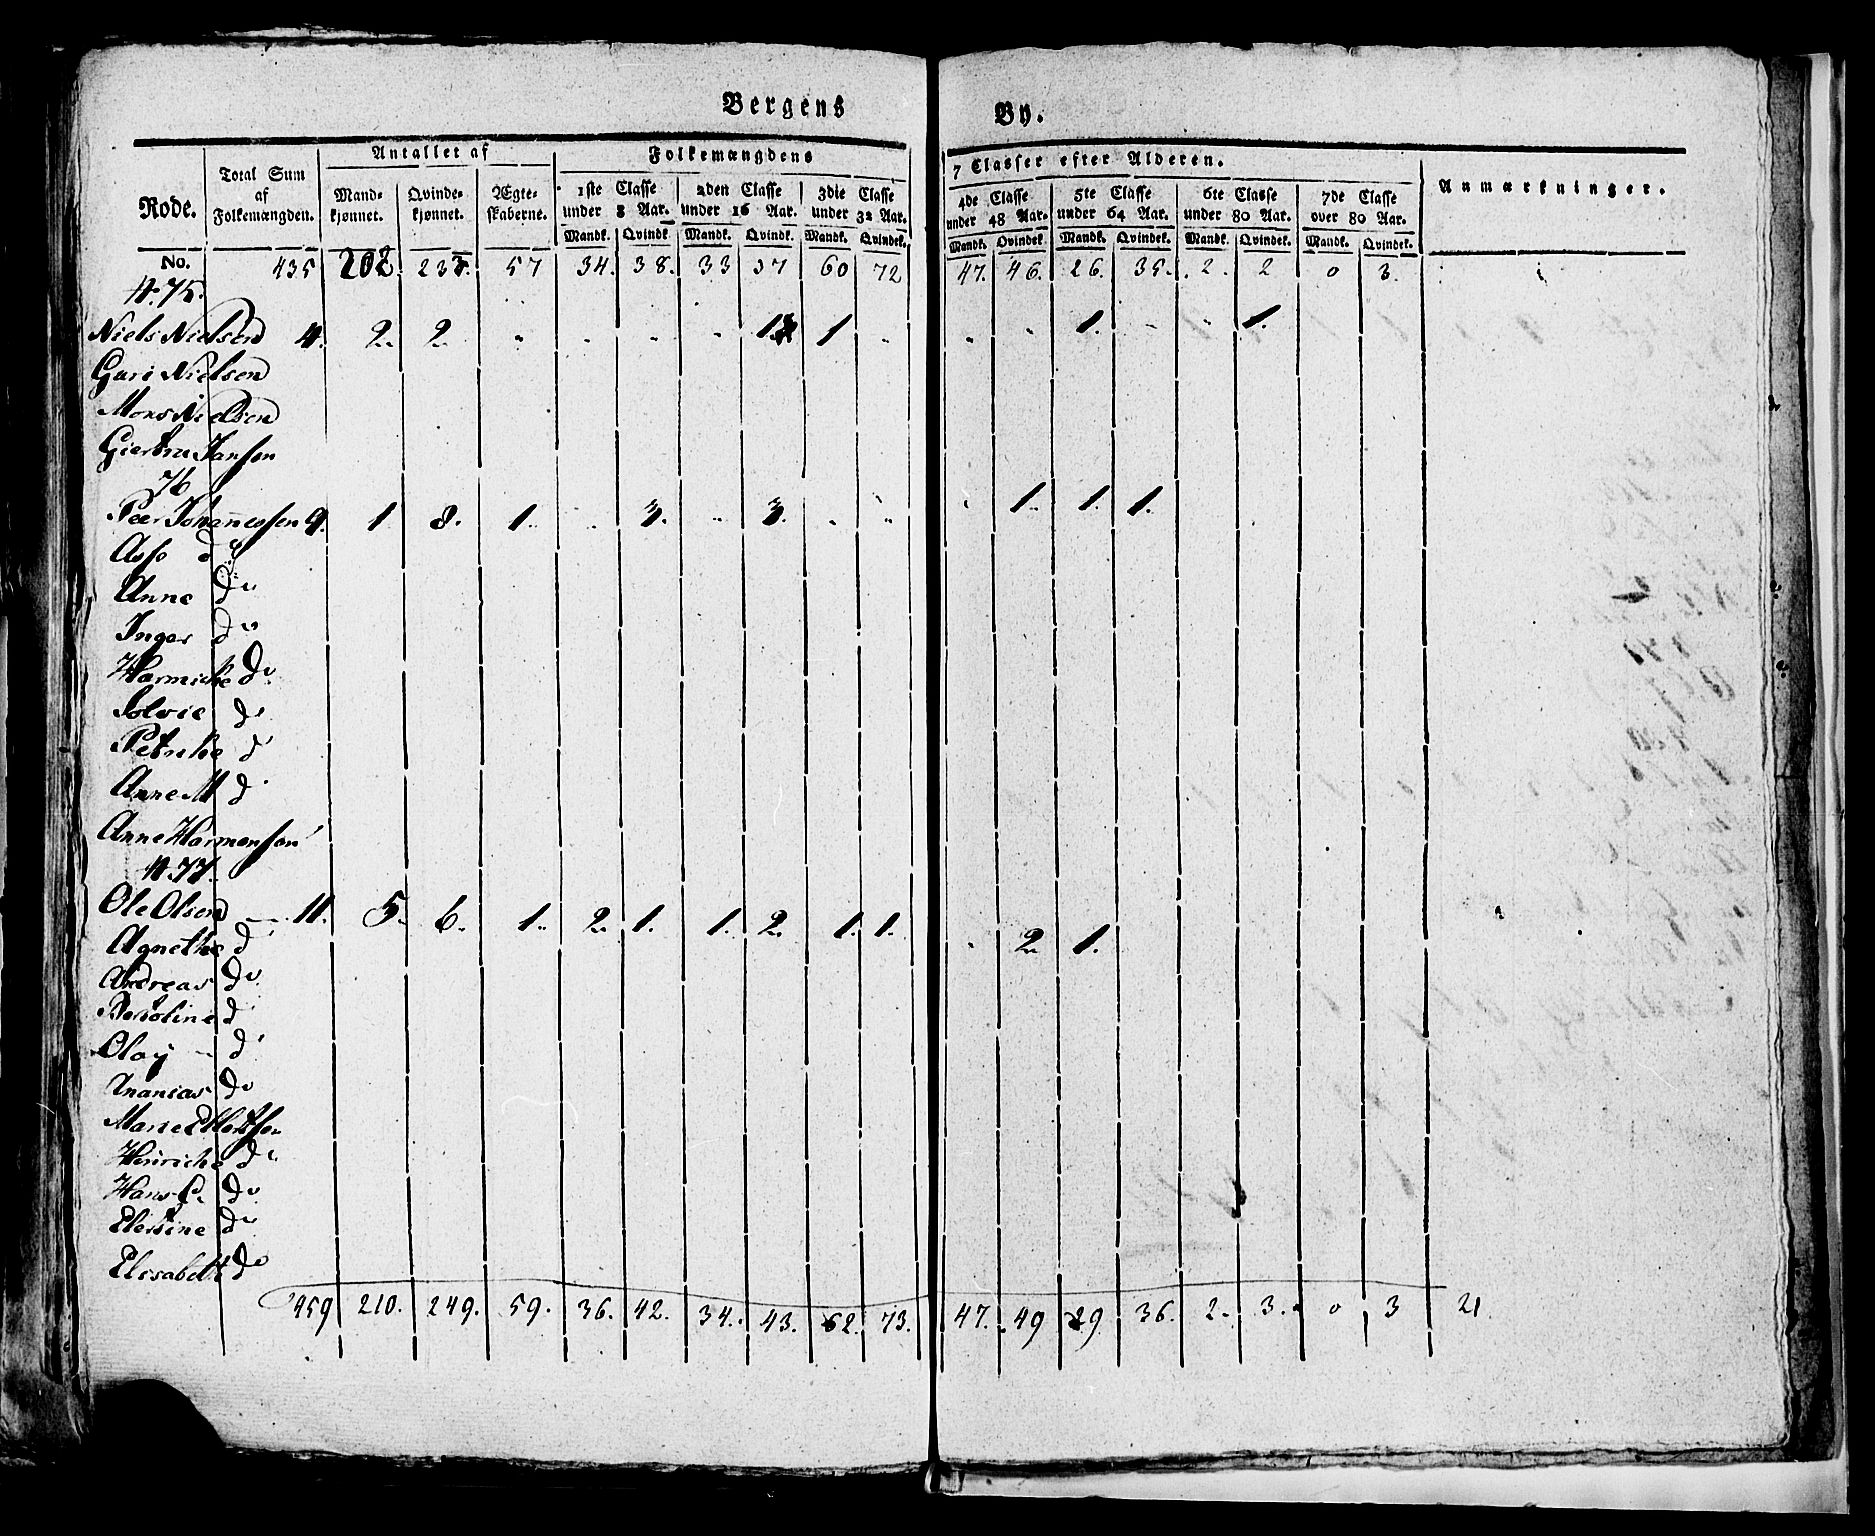 Bergens By.
Rode. Total Sum af Folkemængden. Antallet af Folkemængdens 7 Classer efter Alderen. Anmærkninger.
Mandkjønnet. Qvindekjønnet. Ægteskaberne. 1ste Classe under 8 Aar. 2den Classe under 16 Aar. 3die Classe under 32 Aar. 4de Classe under 48 Aar. 5te Classe under 64 Aar. 6te Classe under 80 Aar. 7de Classe over 80 Aar.
Mandk. Qvindk. Mandk. Qvindk. Mandk. Qvindek. Mandk. Qvindek. Mandk. Qvindek. Mandk. Qvindek. Mandk. Qvindek.
No. 435 202 233 57 34. 38. 33 37 60 72 47. 46. 26. 35. 2. 2 0 3.
N. 75.
Niels Nielsen 4. 2. 2. 1 1 1. 1.
Guri Nielsen
Mons Nielsen
Giertru Jansen
76
Peer Johannessen 9. 1 8. 1. 3. 3. 1. 1. 1.
Anne do
Inger do
Harmicke do
Solvie do
Petrike d
Anne M d
Anne Harmensen
N. 77.
Ole Olsen 11. 5. 6. 1. 2. 1. 1. 2. 1. 1. 2. 1.
Agnethe d
Andreas do
Bertoline d
Olay d
Ananias do
Marie Ellertsen
Henricke do
Hans C. do
Elertine do
Elisabeth do
459 210. 249. 59. 36. 42. 34. 43. 62. 73. 47. 49 29 36. 2. 3. 0 3 21.